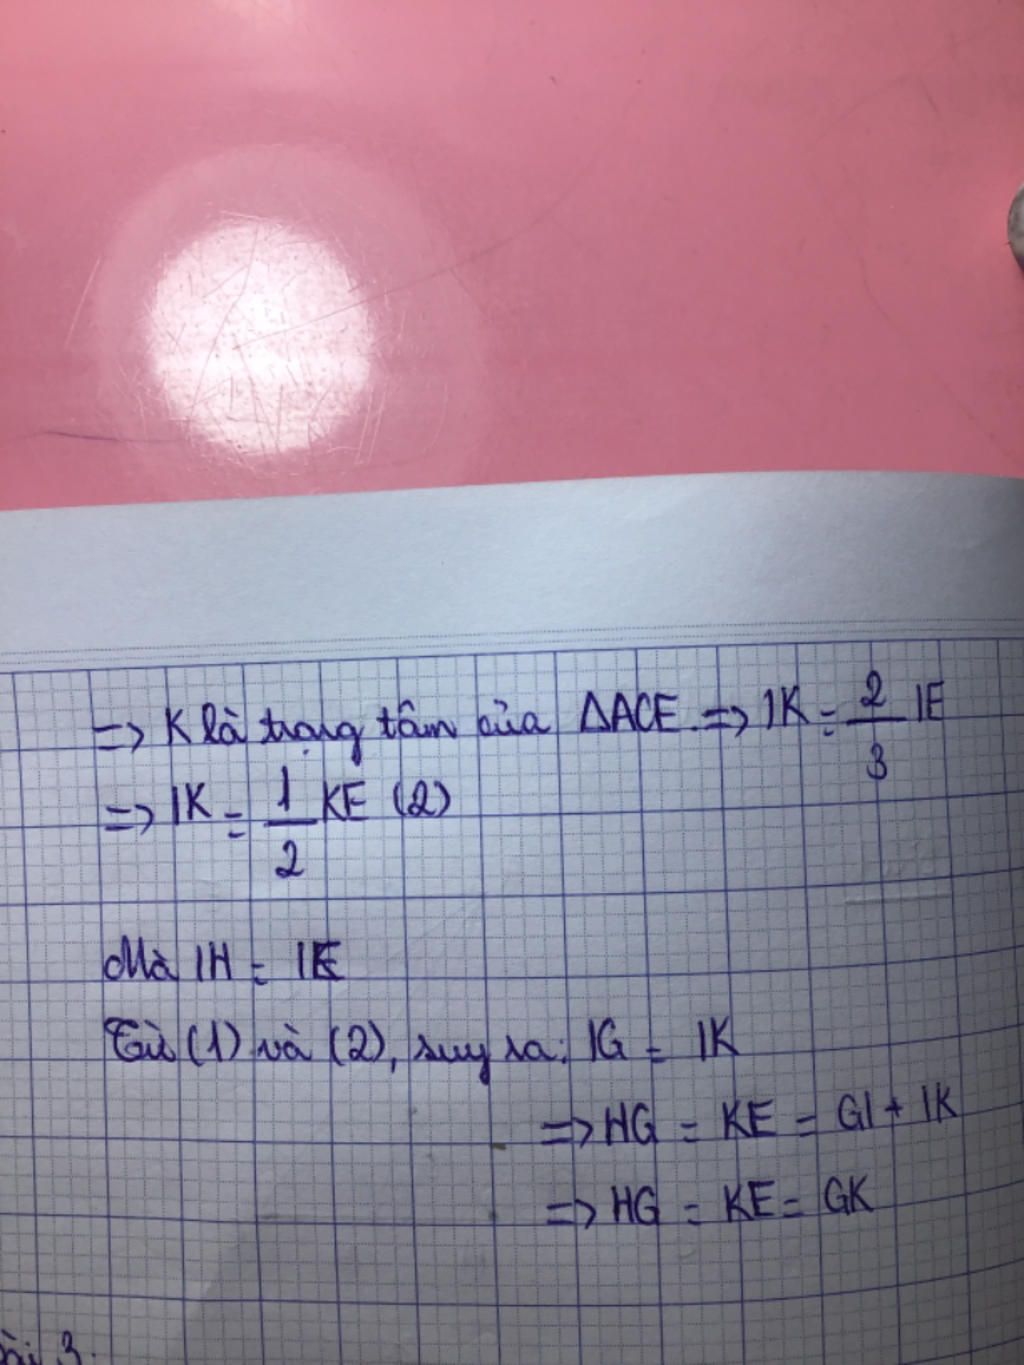 => K là trọng tâm của ΔACE. => IK = 2/3 IE
=> IK = 1/2 KE (2)
Mà IH = IE
Từ (1) và (2), suy ra: IG = IK
=> HG = KE = GI + IK
=> HG = KE = GK
Bài 3.